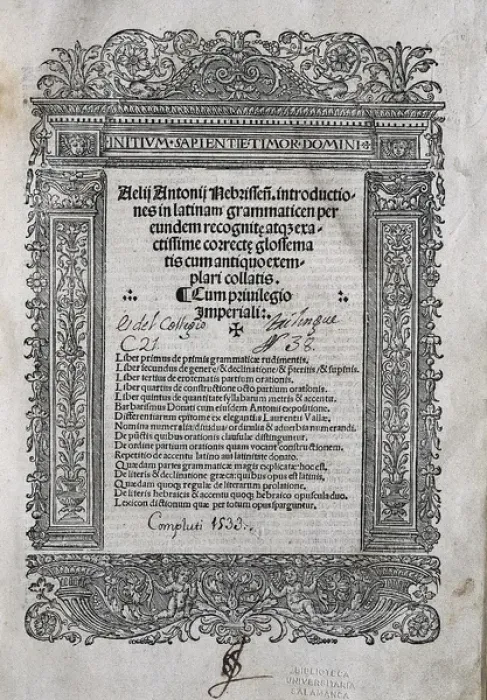 INITIVM·SAPIENTIE TIMOR·DOMINI
Aelij Antonij Nebrisseñ. introductio-
nes in latinam grammaticen per
eundem recognitę atqꝫ exa-
ctissime correctę glossema
tis cum antiquo exem-
plari collatis.
¶Cum priuilegio
Imperiali:.
Es del Collegio trilingue
C 21 38.
Liber primus de primis grammaticæ rudimentis.
Liber secundus de genere/& declinatione/& p̃teritis/& supinis.
Liber tertius de erotematis partium orationis.
Liber quartus de constructione octo partium orationis.
Liber quintus de quantitate syllabarum metris & accentu.
Barbarismus Donati cum eiusdem Antonii expositione.
Differentiarum epitome ex elegantiis Laurentii Vallæ.
Nomina numeralia/diuidua/ordinalia & aduerbia numerandi.
De pũctis quibus orationis clausulæ distinguuntur.
De ordine partium orationis quam vocant constructionem.
Repetitio de accentu latino aut latinitate donato.
Quædam partes grammaticæ magis explicatæ: hoc est,
De literis & declinatione græca: quibus opus est latinis,
Quædam quoqꝫ regulæ de literarum prolatione.
De literis hebraicis & accentu quoqꝫ hebraico opuscula duo.
Lexicon dictionum quæ per totum opus sparguntur.
Compluti 1533.
BIBLIOTECA
UNIVERSITARIA
SALAMANCA